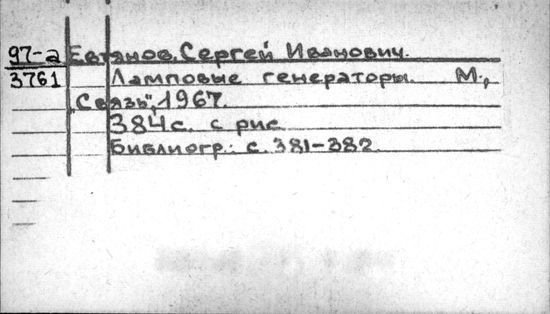 97-а Евтянов, Сергей Иванович.
3761 Ламповые генераторы. М.,
"Связь", 1967.
384 с. с рис
Библиогр.: с. 381-382